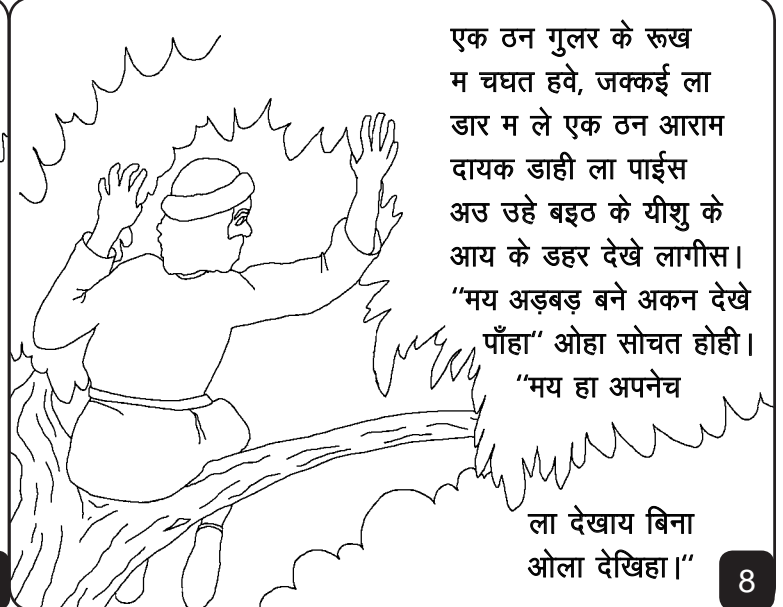 एक ठन गुलर के रूख
म चघत हवे, जक्कई ला
डार म ले एक ठन आराम
दायक डाही ला पाईस
अउ उहे बइठ के यीशु के
आय के डहर देखे लागीस।
“मय अड़बड़ बने अकन देखे
पाँहा“ ओहा सोचत होही।
“मय हा अपनेच
ला देखाय बिना
ओला देखिहा।“
8